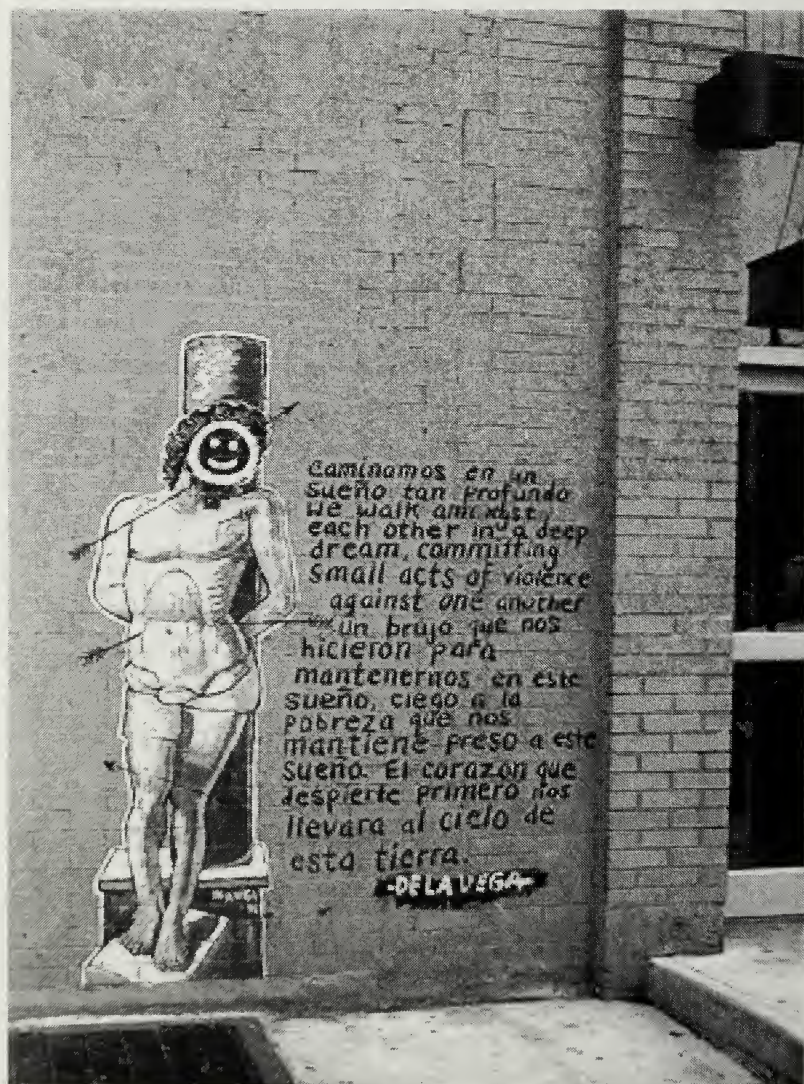 Caminamos en un
sueño tan profundo
we walk amidst
each other in a deep
dream, committing
small acts of violence
against one another
un brujo que nos
hicieron para
mantenernos en este
sueño, ciego a la
pobreza que nos
mantiene preso a este
sueño. El corazon que
despierte primero nos
llevara al cielo de
esta tierra.
-DE LA VEGA-